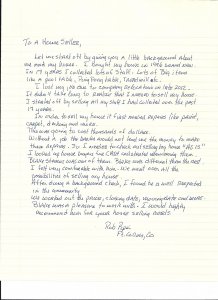 To A House Seller,
Let me start off by giving you a little background about
me and my house. I bought my house in 1986 brand new
In 17 years I collected lots of stuff. Lots of Big items
like a pool table, Ping Pong table, Treadmill etc.
I lost my job due to company reduction in late 2002.
It didn't take long to realize that I needed to sell my house
I started off by selling all my stuff I had collected over the past
17 years.
In order to sell my house it first needed repairs like paint,
carpet, decking and more.
This was going to cost thousands of dollars.
Without a job the banks would not loan me the money to make
them repairs. So I needed to check out selling my house "AS IS"
I looked up house buyers who and advertising them.
Blake was one of them. Blake was different than the rest
I felt very comfortable with him. We went over all the
possibilities of selling my house
After doing a background check, I found he is well Respected
in the community.
We worked out the price, closing date, and more.
Blake was a pleasure to work with. I would highly
recommend him for your house selling needs.
Rob
Ft. Collins, Co